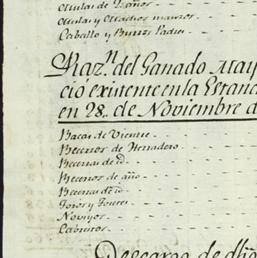 Mulas de 2 años
Mulas y Machos mansos
Caballo y Burros Padres
Raz.n del Ganado May
cio existente en la Estanc
en 28,, de Noviembre d
Bacas de Vientre
Becerros de Herradero
Becerras de id
Becerros de año
Becerras de id
Toros y Toretes
Novillos
Cabritos
Descargo de dho